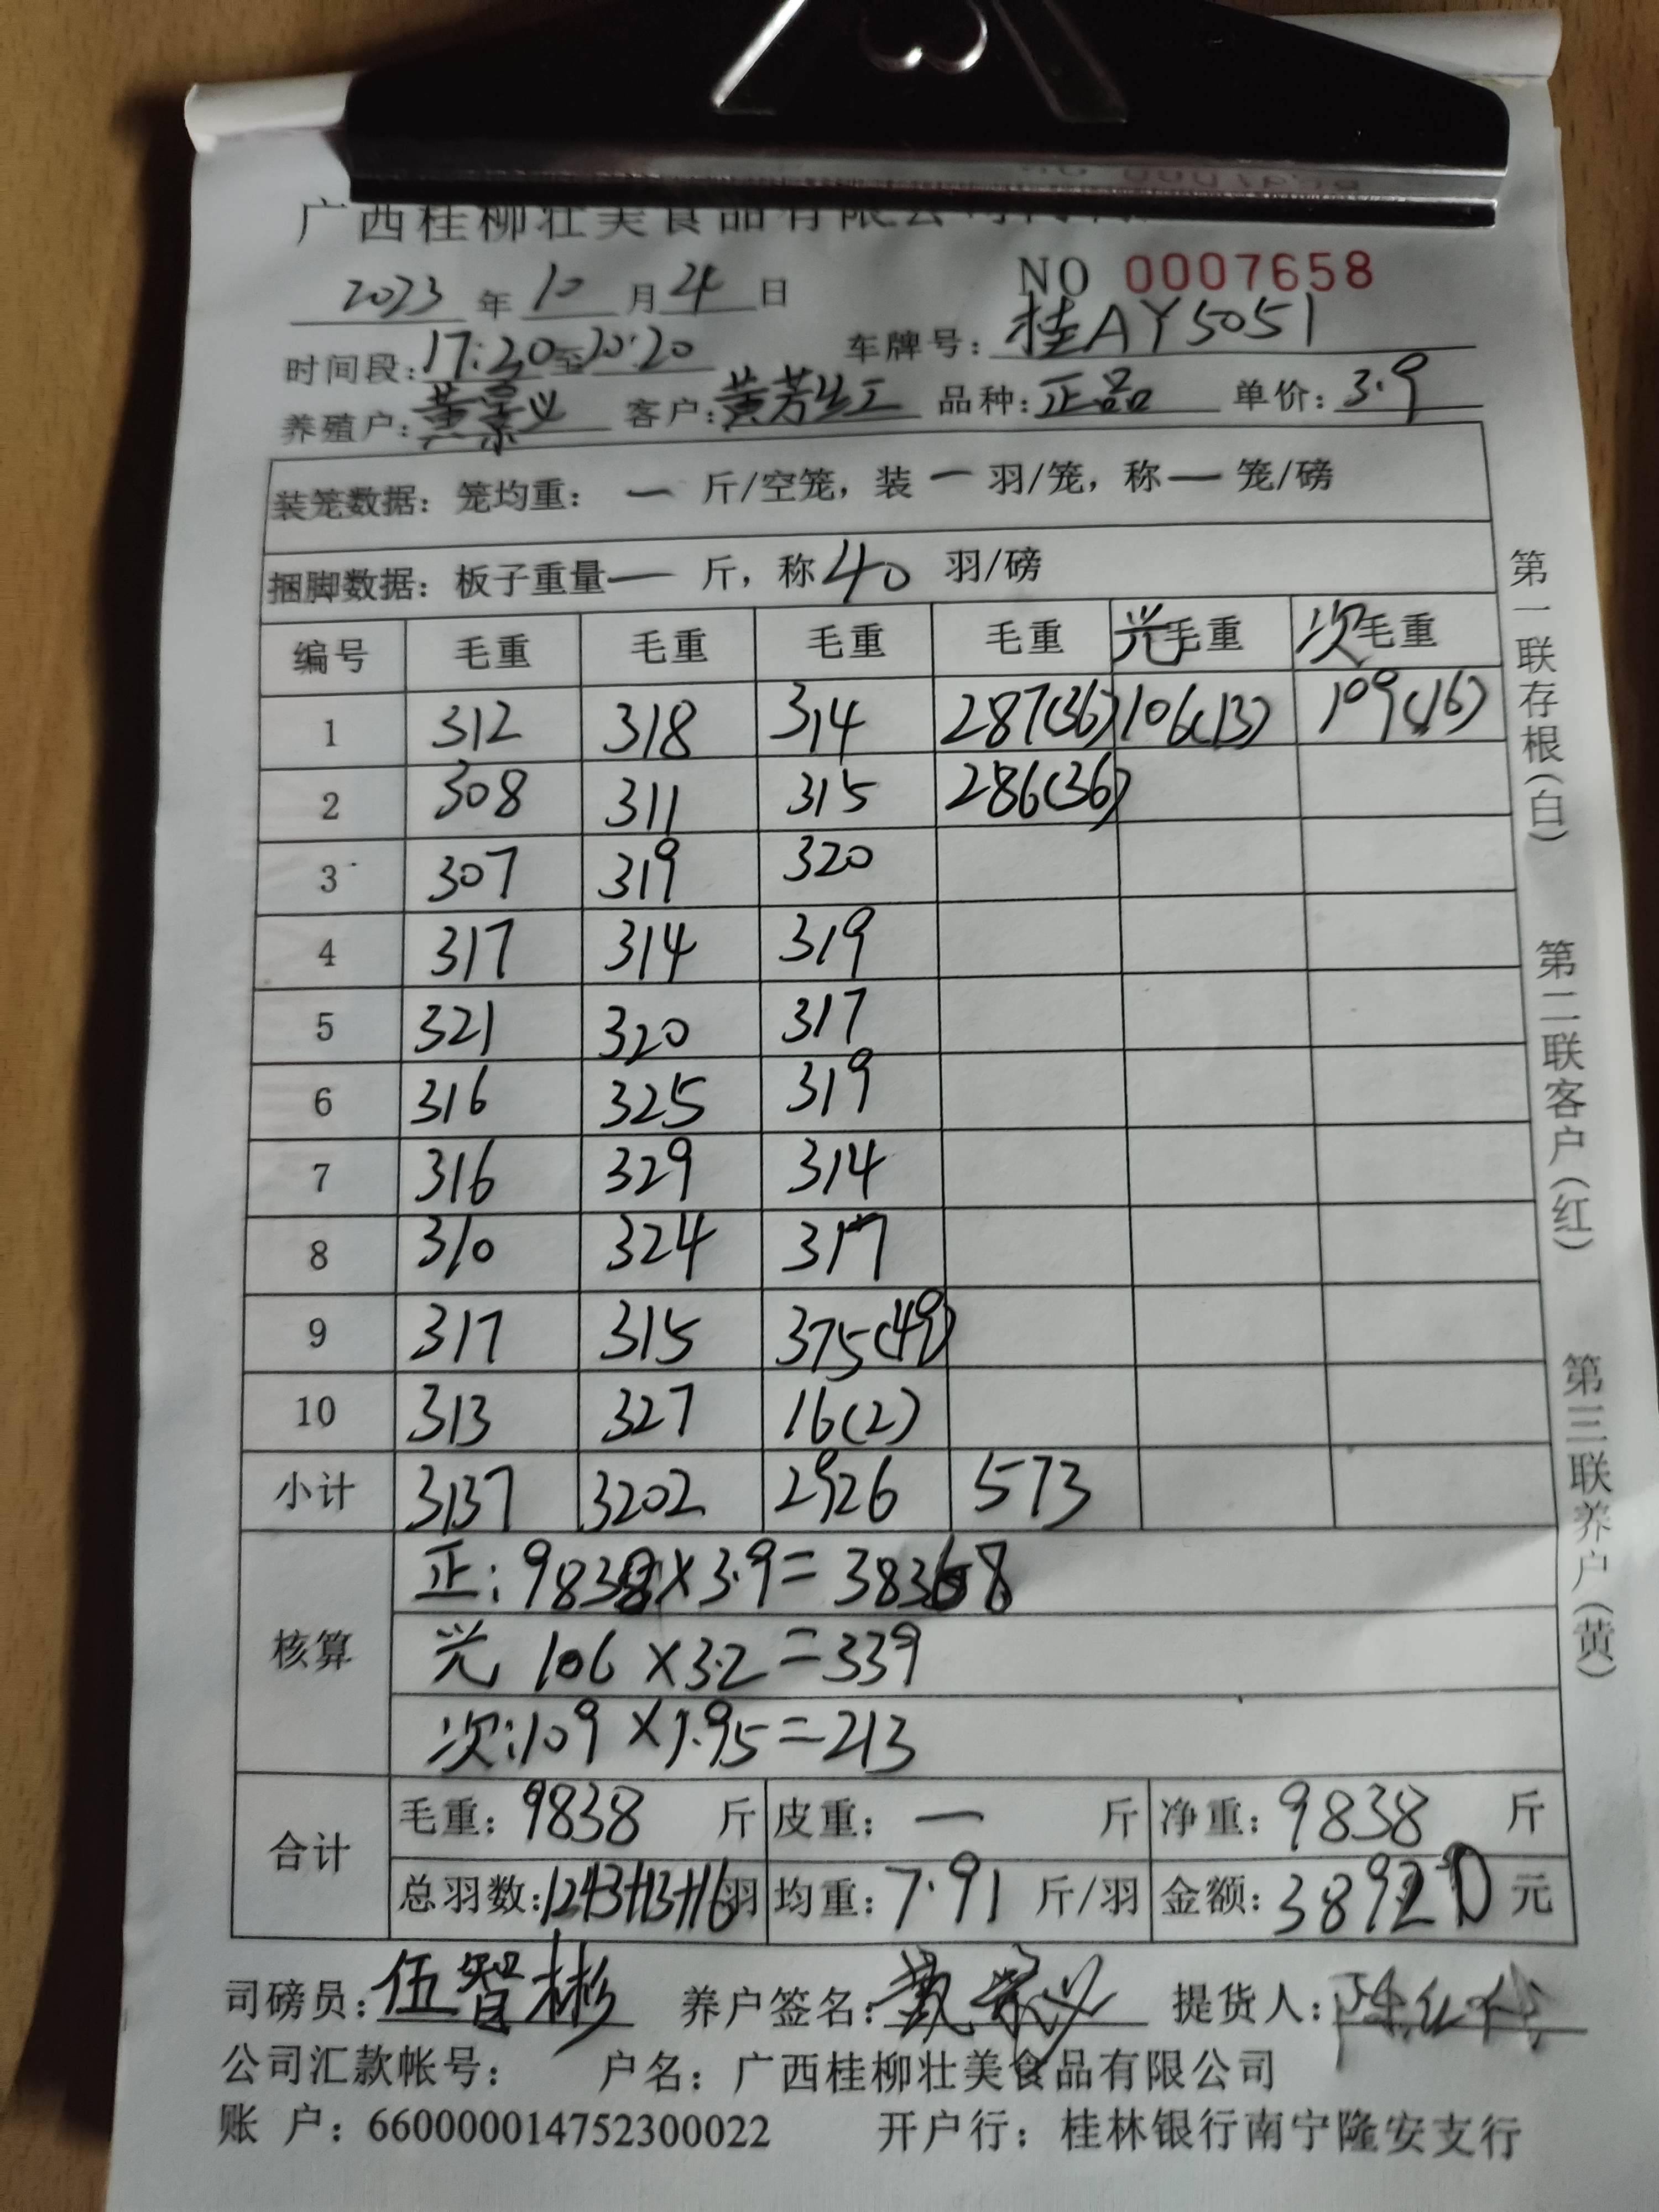 广西桂柳壮美食品有限公司
NO 0007658
2023 年 10 月 4 日
时间段:17:20至20:20 车牌号: 桂AY5051
养殖户: 黄景义 客户: 黄芳生工 品种: 正品 单价: 3.9
装笼数据: 笼均重: 一 斤/空笼, 装 一 羽/笼, 称 一 笼/磅
捆脚数据: 板子重量 一 斤, 称 40 羽/磅
编号 毛重 毛重 毛重 毛重 光毛重 次毛重
1 312 318 314 287(36) 106(13) 109(16)
2 308 311 315 286(36)
3 307 319 320
4 317 314 319
5 321 320 317
6 316 325 319
7 316 329 314
8 310 324 317
9 317 315 375(49)
10 313 327 16(2)
小计 3137 3202 2926 573
核算 正: 9838×3.9=38368
光 106×3.2=339
次:109×1.95=213
合计 毛重: 9838 斤 皮重: 一 斤 净重: 9838 斤
总羽数: 1243+13+16羽 均重: 7.91 斤/羽 金额: 38920 元
司磅员: 伍智彬 养户签名: 提货人:
公司汇款帐号: 户名: 广西桂柳壮美食品有限公司
账 户: 660000014752300022 开户行: 桂林银行南宁隆安支行
第一联存根(白) 第二联客户(红) 第三联养户(黄)